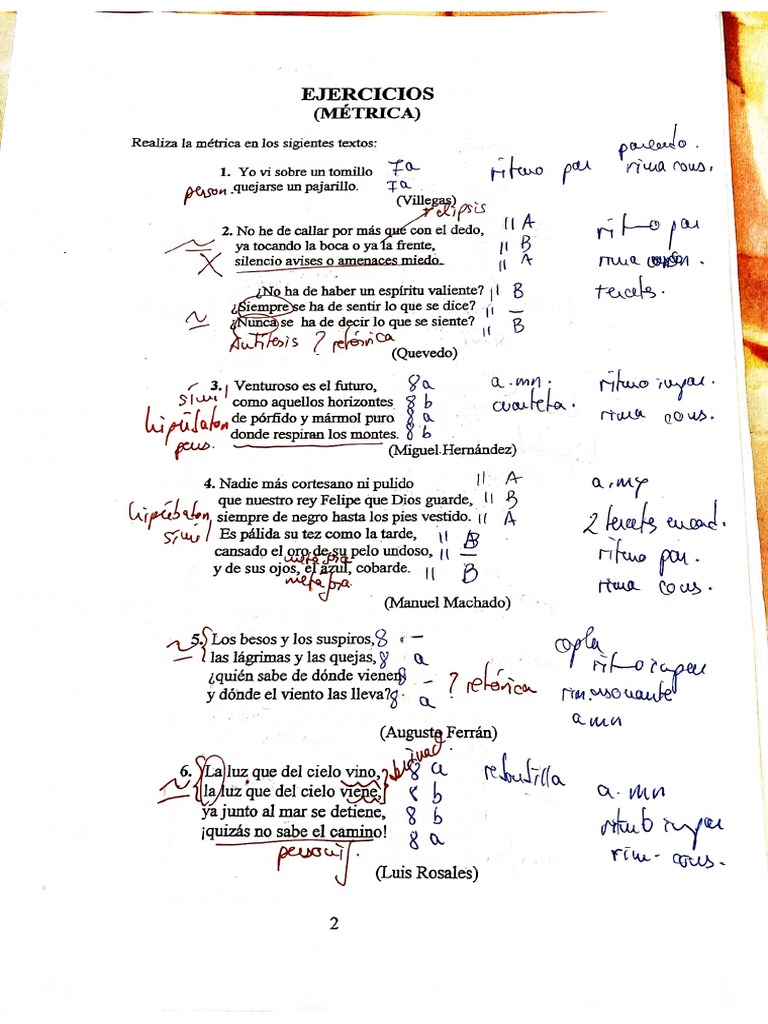 EJERCICIOS
(MÉTRICA)
Realiza la métrica en los sigientes textos:
pareado.
1. Yo vi sobre un tomillo 7a ritmo par rima cons.
person. quejarse un pajarillo. 7a
(Villegas)
elipsis
2. No he de callar por más que con el dedo, 11 A ritmo par
ya tocando la boca o ya la frente, 11 B
silencio avises o amenaces miedo. 11 A rima
¿No ha de haber un espíritu valiente? 11 B tercetos.
¿Siempre se ha de sentir lo que se dice? 11 –
¿Nunca se ha de decir lo que se siente? 11 B
Antítesis ? retórica
(Quevedo)
3. Venturoso es el futuro, 8a a.mn. ritmo impar.
símil como aquellos horizontes 8 b cuarteta.
hipérbaton de pórfido y mármol puro 8 a rima cons.
pers. donde respiran los montes. 8 b
(Miguel Hernández)
4. Nadie más cortesano ni pulido 11 A a.my
que nuestro rey Felipe que Dios guarde, 11 B
hipérbaton, siempre de negro hasta los pies vestido. 11 A 2 tercetos encad.
símil Es pálida su tez como la tarde, 11 B
cansado el oro de su pelo undoso, 11 – ritmo par.
metáfora
y de sus ojos, el azul, cobarde. 11 B rima cons.
metáfora
(Manuel Machado)
5. Los besos y los suspiros, 8 – copla
las lágrimas y las quejas, 8 a ritmo impar
¿quién sabe de dónde vienen 8 – ? retórica rim. asonante
y dónde el viento las lleva? 8 a a mn
(Augusto Ferrán)
6. La luz que del cielo vino, 8 a redondilla
la luz que del cielo viene, 8 b a.mn
ya junto al mar se detiene, 8 b ritmo impar
¡quizás no sabe el camino! 8 a rim. cons.
personif.
(Luis Rosales)
2